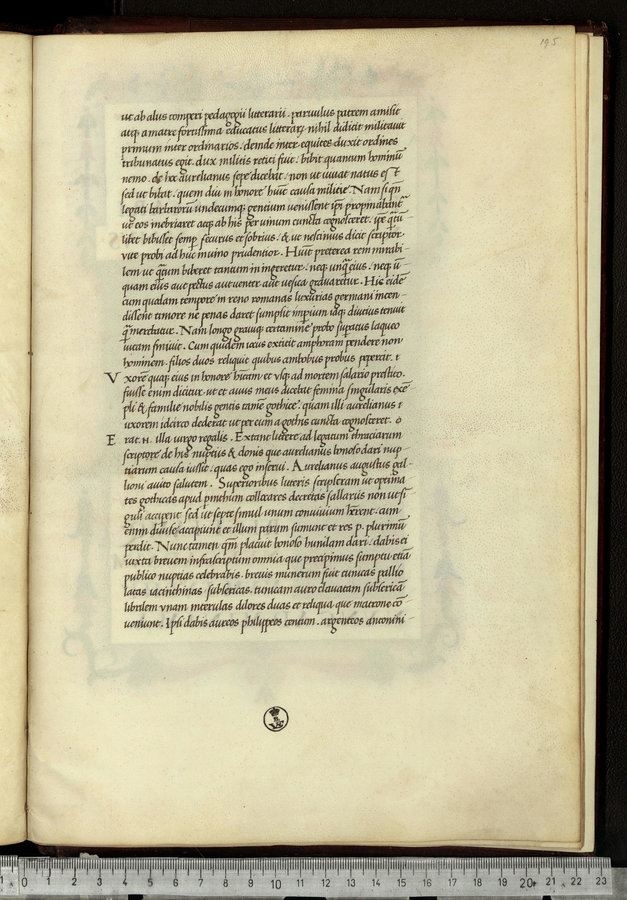 195
ut ab aliis comperi pedagogii litterarii . parvulus patrem amisit
atq; a matre fortissima educatus litteraꝝ nihil didicit militavit
primum inter ordinarios . deinde inter equites duxit ordines
tribunatus egit . dux militis retici fuit . bibit quantum hominū
nemo . de hoc aurelianus sepe dicebat . non ut vivat natus est
sed ut bibat . quem diu in honore habuit causa militie . Nam siqñ
legati barbarorū undecumq; gentium venissent ipsi propinabantur
ut eos inebriaret atq; ab his per vinum cuncta cognosceret . ipse
libet bibisset semp securus et sobrius . & ut nescimus dicit scriptor
vite probi adhuc in vino prudentior . Habuit preterea rem mirabi
lem ut biberet tantum mingeretur . neq; unqꝫ eius . neq;
quam eius aut pectus aut venter aut vesica gravaretur . Hic eidē
cum quodam tempore in reno romanas luxurias germani incen
dissent timore ne penas daret sumpsit imperium idq; diutius tenuit
merebatur . Nam longo gravuiq; certamine probo supatus laqueo
vitam finivit . Cum quidem iocus extitit amphoram pendere non
hominem . filios duos reliquit quibus ambobus probus pepercit .
V xorē quaqꝫ eius in honore et usq; ad mortem salario prestito .
fuisse enim dicitur ut et avus meus dicebat femina singularis exē
pli & familie nobilis gentis tamē gothice . quam illi aurelianus
uxorem idcirco dederat ut per eum a gothis cuncta cognosceret . o
E rat .n. illa virgo regalis . Extant littere ad legatum thraciarum
scripte de his nuptiis & donis que aurelianus bonoso dari nup
tiarum causa iussit . quas ego inserui . Aurelianus augustus gal
lioni avito salutem . Superioribus litteris scripseram ut optima
tes gothicas apud pinthum collocares decretis sallariis non ut si
gulę acciperent sed ut septe simul unum convivium herent . cum
enim divise accipiunt et illum parum sumunt et res p. plurimū
perdit . Nunc tamen qm̄ placuit bonoso hunilam dari . dabis ei
iuxta brevem infrascriptum omnia que precipimus sumptu etiā
publico nuptias celebrabis . brevis munerum fuit tunicas pallio
latas iacinthinas . subsericas . tunicam auro clavatam subsericā
librilem vnam interulas dilores duas et reliqua que matrone cō
veniunt . Ipsi dabis aureos philippeos centum . argenteos antonini